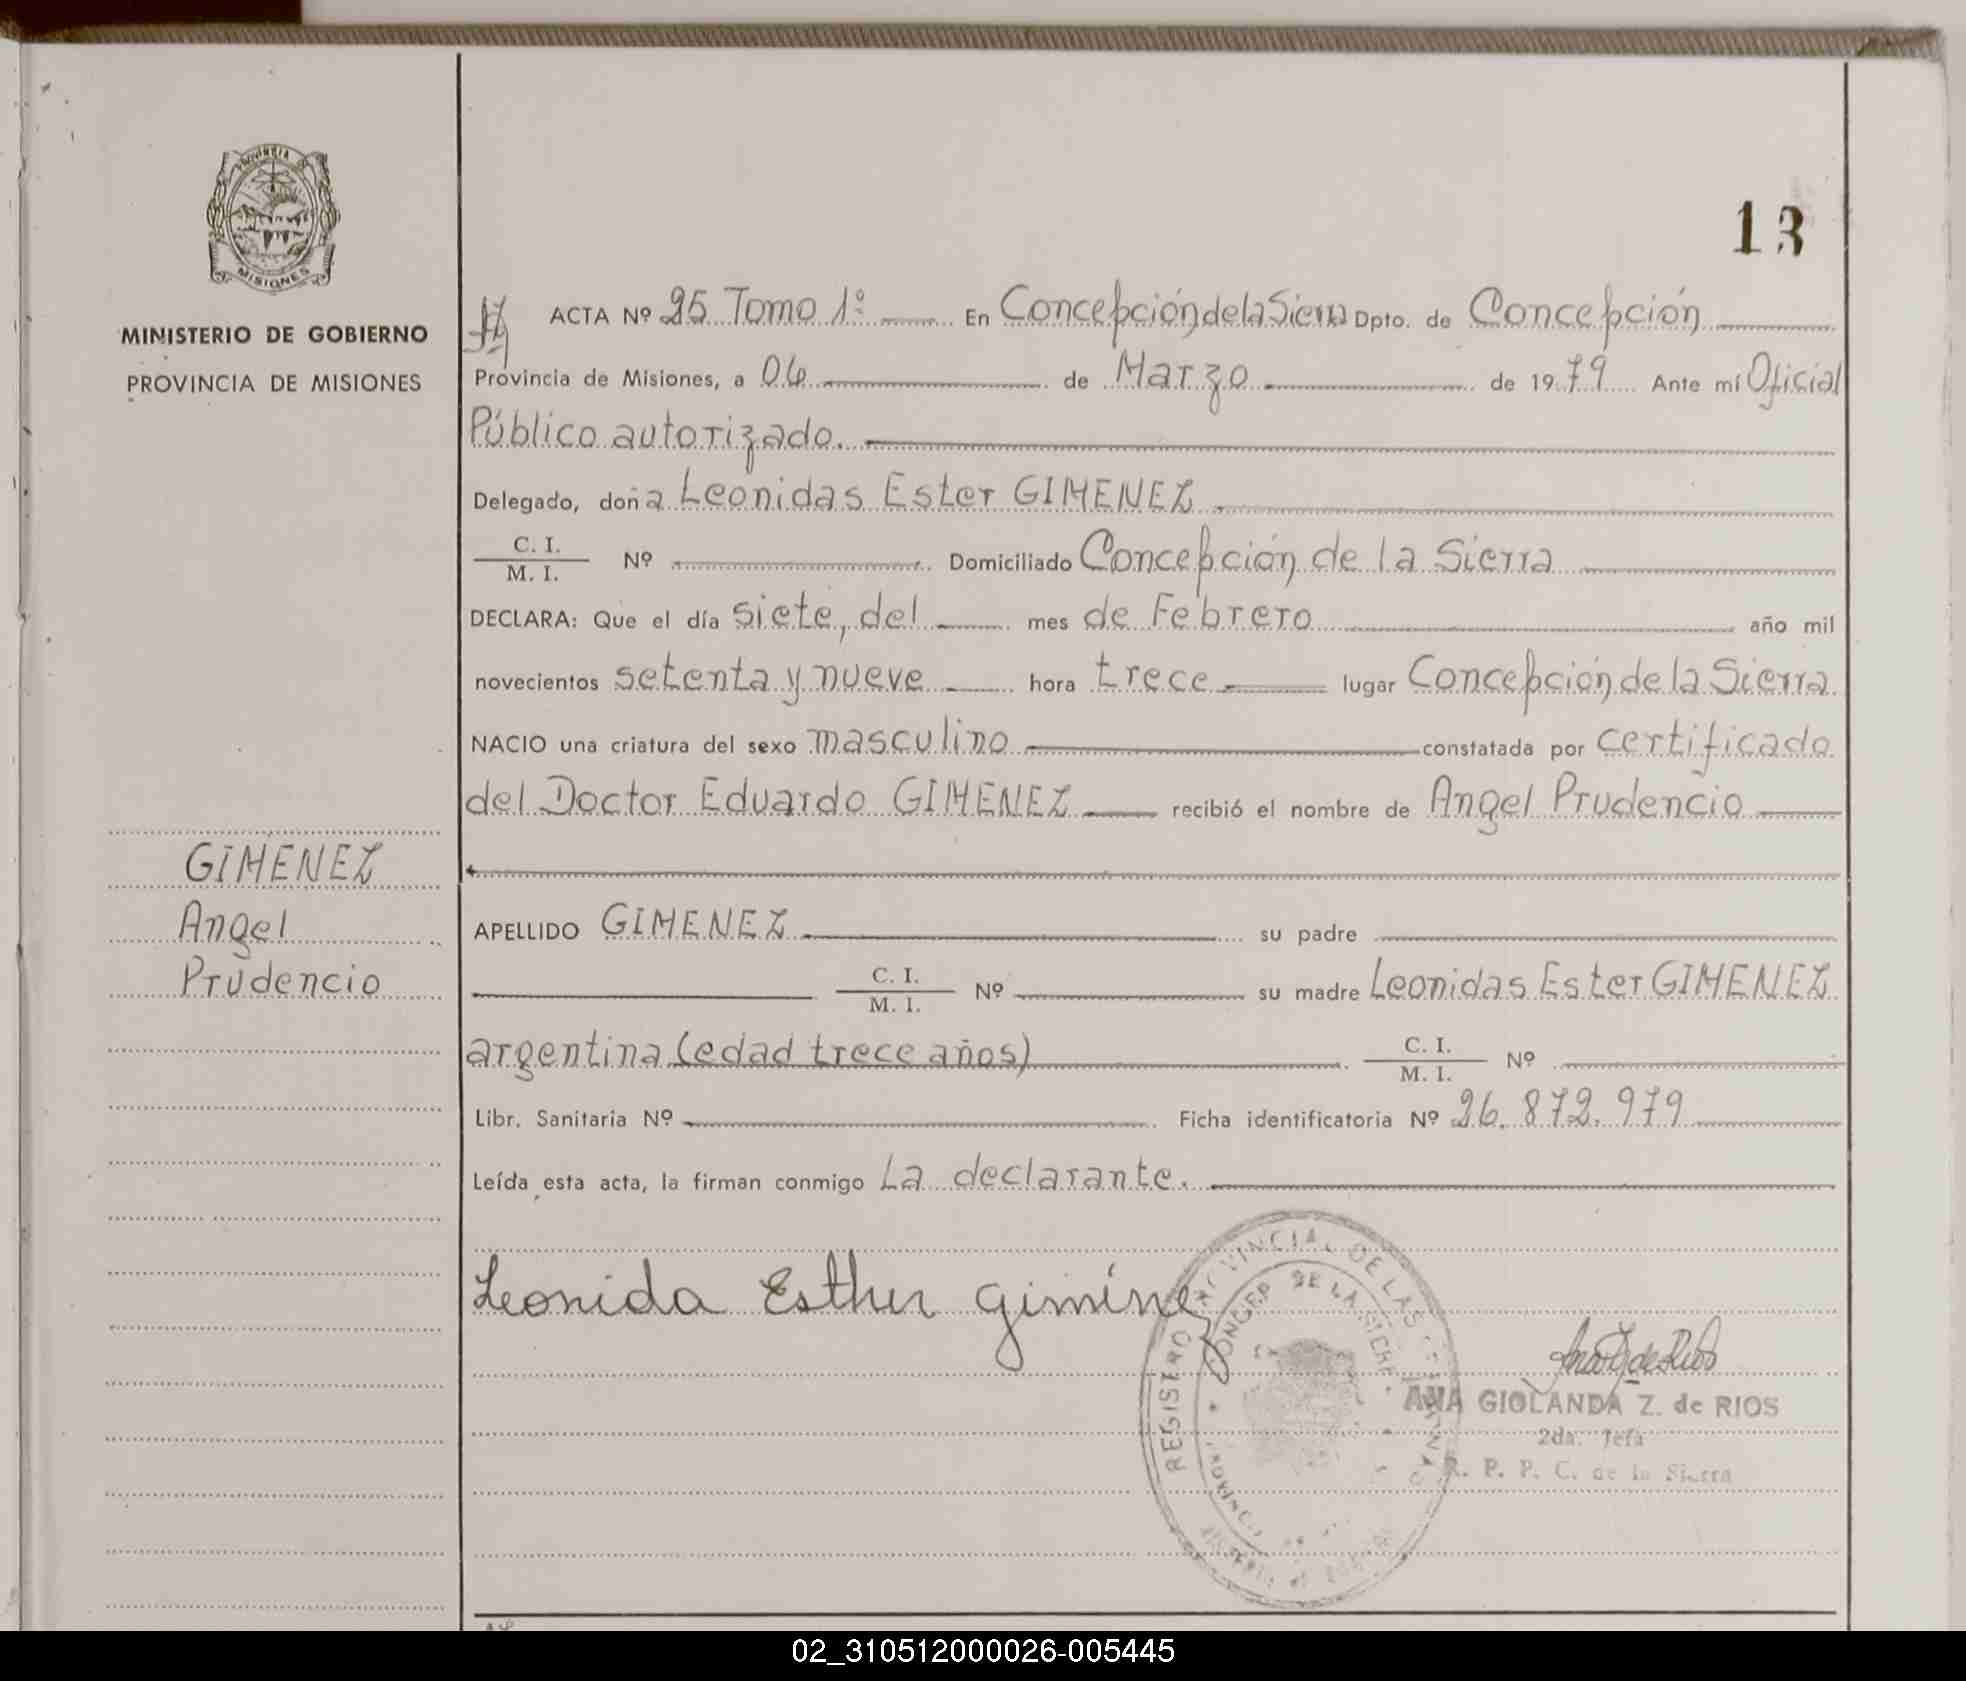 PROVINCIA
MISIONES
MINISTERIO DE GOBIERNO
PROVINCIA DE MISIONES
GIMENEZ
Angel
Prudencio
13
ACTA Nº 25 Tomo 1º En Concepción de la Sierra Dpto. de Concepción
Provincia de Misiones, a 06 de Marzo de 1979 Ante mí Oficial
Público autorizado.
Delegado, doña Leonidas Ester GIMENEZ
C. I.
M. I. Nº Domiciliado Concepción de la Sierra
DECLARA: Que el día siete, del mes de Febrero año mil
novecientos setenta y nueve hora trece lugar Concepción de la Sierra
NACIO una criatura del sexo masculino constatada por certificado
del Doctor Eduardo GIMENEZ recibió el nombre de Angel Prudencio
APELLIDO GIMENEZ su padre
C. I.
M. I. Nº su madre Leonidas Ester GIMENEZ
argentina (edad trece años) C. I.
M. I. Nº
Libr. Sanitaria Nº Ficha identificatoria Nº 26.872.979
Leída esta acta, la firman conmigo La declarante.
Leonida Esther Giminez
REGISTRO PROVINCIAL DE LAS
CONCEP. DE LA SIERRA
ANA GIOLANDA Z. de RIOS
2da. Jefa
R. P. P. C. de la Sierra
02_310512000026-005445